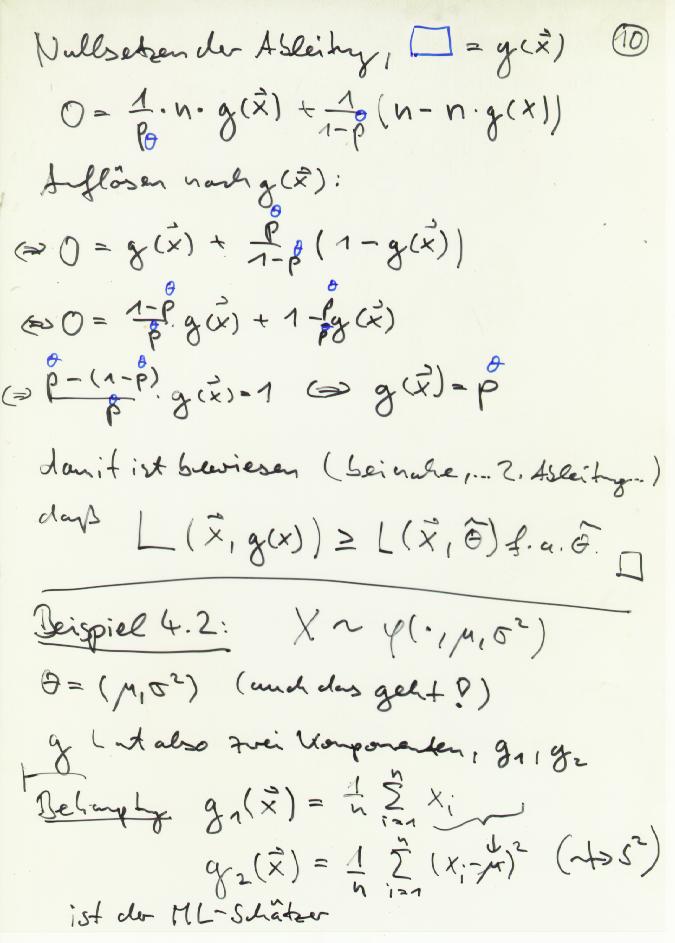 Nullsetzen der Ableitung, □ = g(x⃗) ⑩
0 = 1/p θ · n · g(x⃗) + 1/(1-p θ) (n - n · g(x))
Auflösen nach g(x⃗):
⇔ 0 = g(x⃗) + p θ/(1-p θ) (1 - g(x⃗))
⇔ 0 = (1-p θ)/p θ · g(x⃗) + 1 - p θ/p θ g(x⃗)
⇔ (p θ - (1-p θ))/p θ · g(x⃗) = 1 ⇔ g(x⃗) = p θ
damit ist bewiesen (beinahe,... 2. Ableitung...)
daß L(x⃗, g(x)) ≥ L(x⃗, θ̃) f.a. θ̃ □
Beispiel 4.2: X ~ φ(·, μ, σ²)
θ = (μ, σ²) (auch das geht!)
g hat also zwei Komponenten, g₁, g₂
Behauptg g₁(x⃗) = 1/n Σ_{i=1}^n x_i
g₂(x⃗) = 1/n Σ_{i=1}^n (x_i - μ)² (↛ s²)
ist der ML-Schätzer